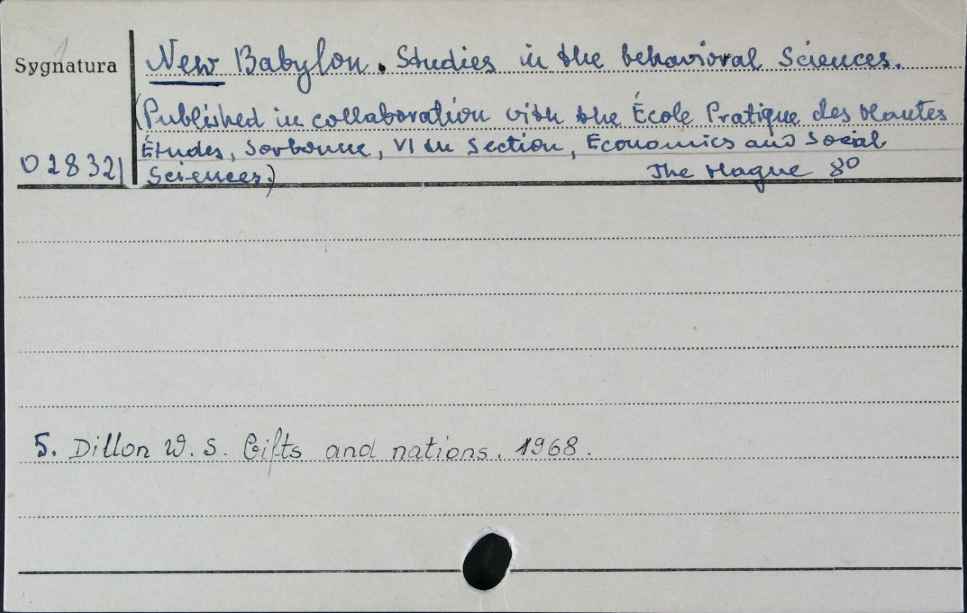 Sygnatura
New Babylon. Studies in the behavioral Sciences.
(Published in collaboration with the École Pratique des Hautes
Études, Sorbonne, VI th Section, Economics and Social
028321 Sciences.) The Hague 8⁰
5. Dillon W. S. Gifts and nations. 1968.